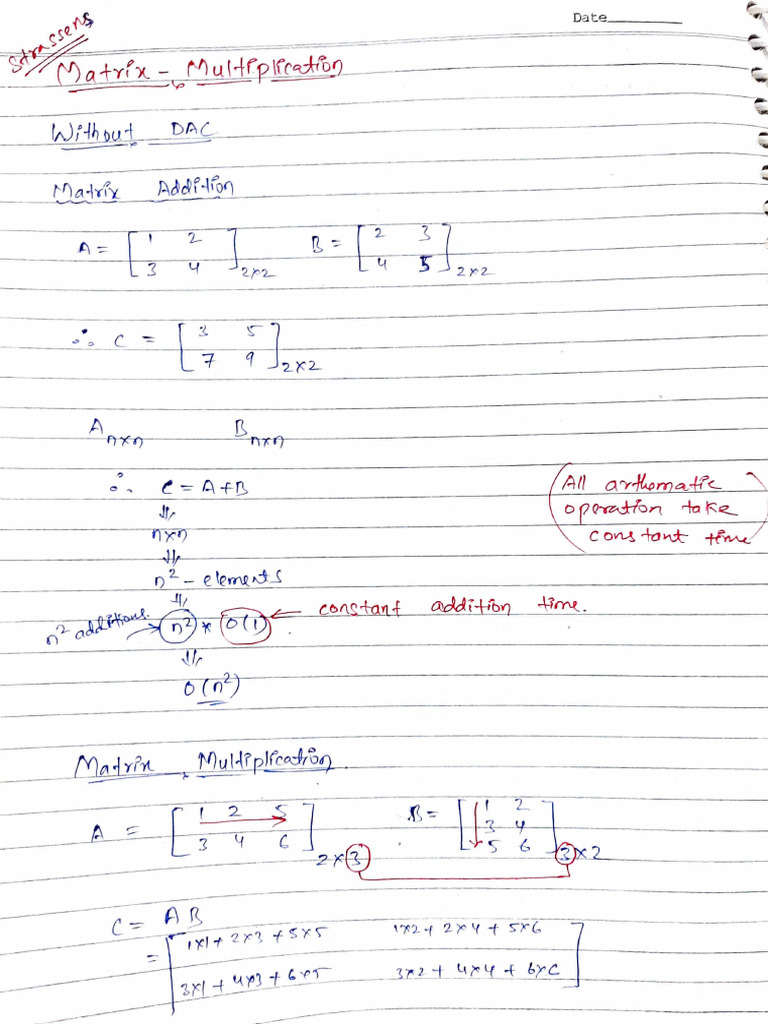 Date
Strassens
Matrix - Multiplication
Without DAC
Matrix Addition
A = [ 1 2 B = [ 2 3
3 4 ]2×2 4 5 ]2×2
∴ C = [ 3 5
7 9 ]2×2
A n×n B n×n
∴ C = A+B
⇓
n×n
⇓
n² - elements
⇓
n² additions. → n² * O(1) ← constant addition time.
⇓
O(n²)
(All arthematic
operation take
constant time)
Matrix Multiplication.
A = [ 1 2 5 B = [ 1 2
3 4 6 ]2×3 3 4
5 6 ]3×2
C = AB
= [ 1×1+2×3+5×5 1×2+2×4+5×6
3×1+4×3+6×5 3×2+4×4+6×6 ]